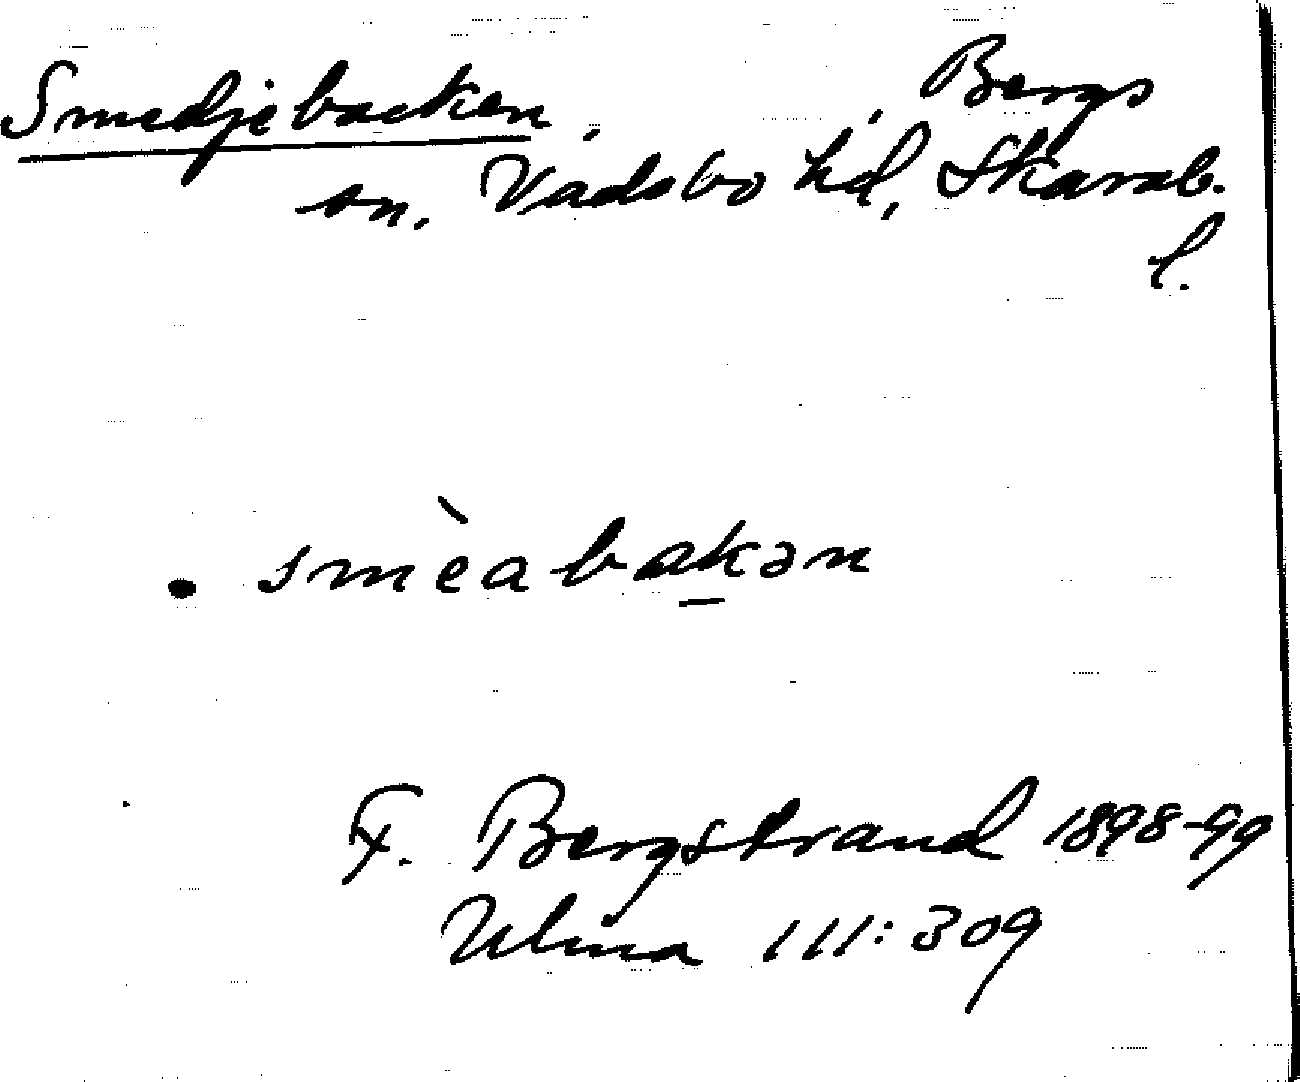 Smedjebacken, , Bergs
sn. Vadsbo hd, Skarab.
l.
• smèabakən
F. Bergstrand 1898-99
Ulma 111:309